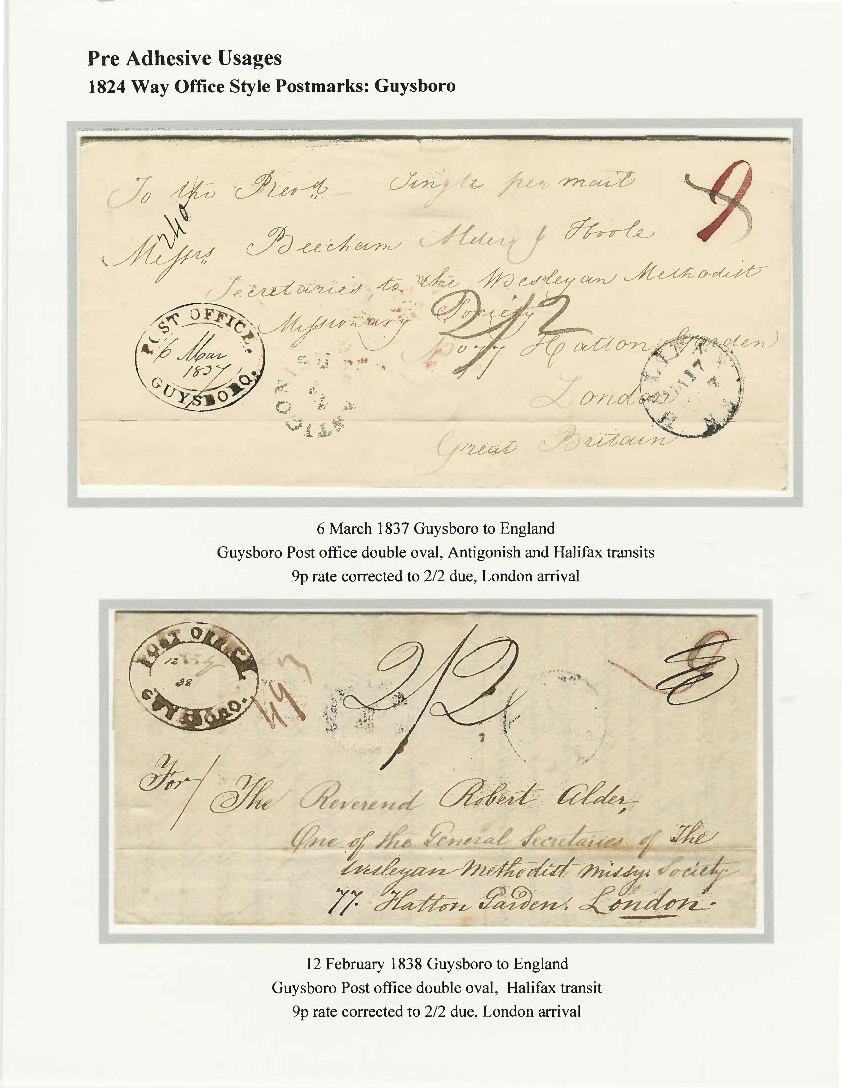 Pre Adhesive Usages
1824 Way Office Style Postmarks: Guysboro
To the Revd Single per mail 9
240
Messrs Beecham Alder & Hoole
Secretaries to the Wesleyan Methodist
Missionary Society
2/2
Hatton Garden
London
Great Britain
POST OFFICE.
6 Mar
1837
GUYSBORO.
6 March 1837 Guysboro to England
Guysboro Post office double oval, Antigonish and Halifax transits
9p rate corrected to 2/2 due, London arrival
POST OFFICE.
12
38
GUYSBORO.
2/2
9
For/ The Reverend Robert Alder,
One of the General Secretaries of The
Wesleyan Methodist Missy. Society
77. Hatton Garden. London.
12 February 1838 Guysboro to England
Guysboro Post office double oval, Halifax transit
9p rate corrected to 2/2 due, London arrival